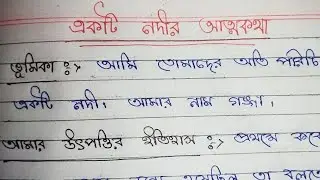 একটি নদীর আত্মকথা
ভূমিকা ঃ> আমি তোমাদের অতি পরিচি
একটি নদী। আমার নাম গঙ্গা।
আমার উৎপত্তির ইতিহাস ঃ> প্রথমে কবে
তা বলতে